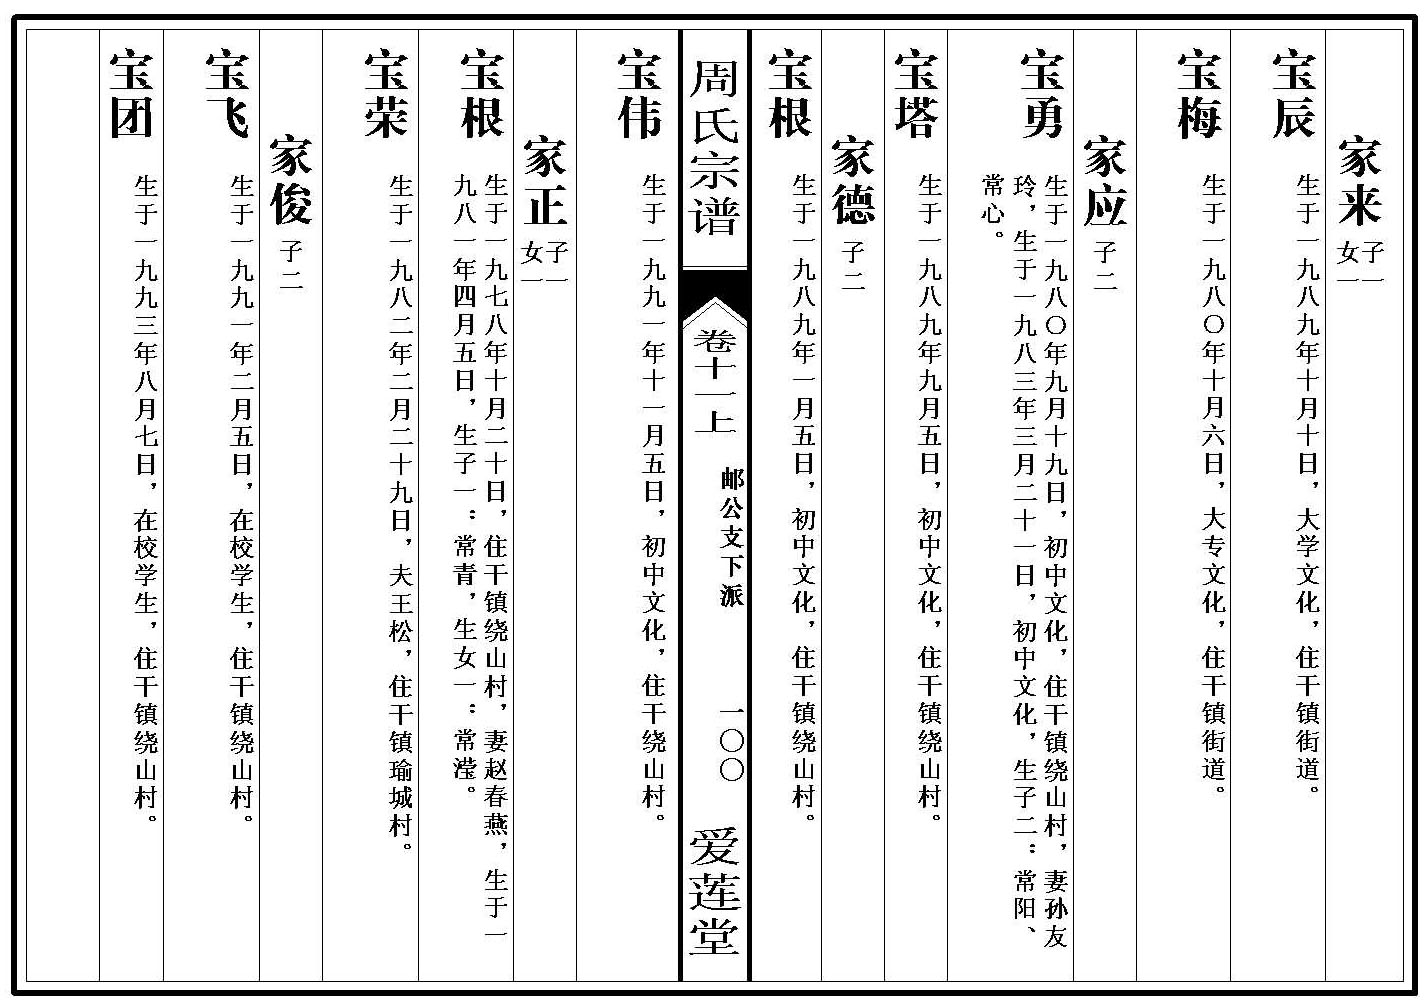 家来 子一 女一
宝辰 生于一九八九年十月十日，大学文化，住干镇街道。
宝梅 生于一九八〇年十月六日，大专文化，住干镇街道。
家应 子二
宝勇 生于一九八〇年九月十九日，初中文化，住干镇绕山村，妻孙友
玲，生于一九八三年三月二十一日，初中文化，生子二：常阳、
常心。
宝塔 生于一九八九年九月五日，初中文化，住干镇绕山村。
家德 子二
宝根 生于一九八九年一月五日，初中文化，住干镇绕山村。
周氏宗谱
卷十一上
邮公支下派
一〇〇
爱莲堂
宝伟 生于一九九一年十一月五日，初中文化，住干绕山村。
家正 子一 女一
宝根 生于一九七八年十月二十日，住干镇绕山村，妻赵春燕，生于一
九八一年四月五日，生子一：常青，生女一：常滢。
宝荣 生于一九八二年二月二十九日，夫王松，住干镇瑜城村。
家俊 子二
宝飞 生于一九九一年二月五日，在校学生，住干镇绕山村。
宝团 生于一九九三年八月七日，在校学生，住干镇绕山村。